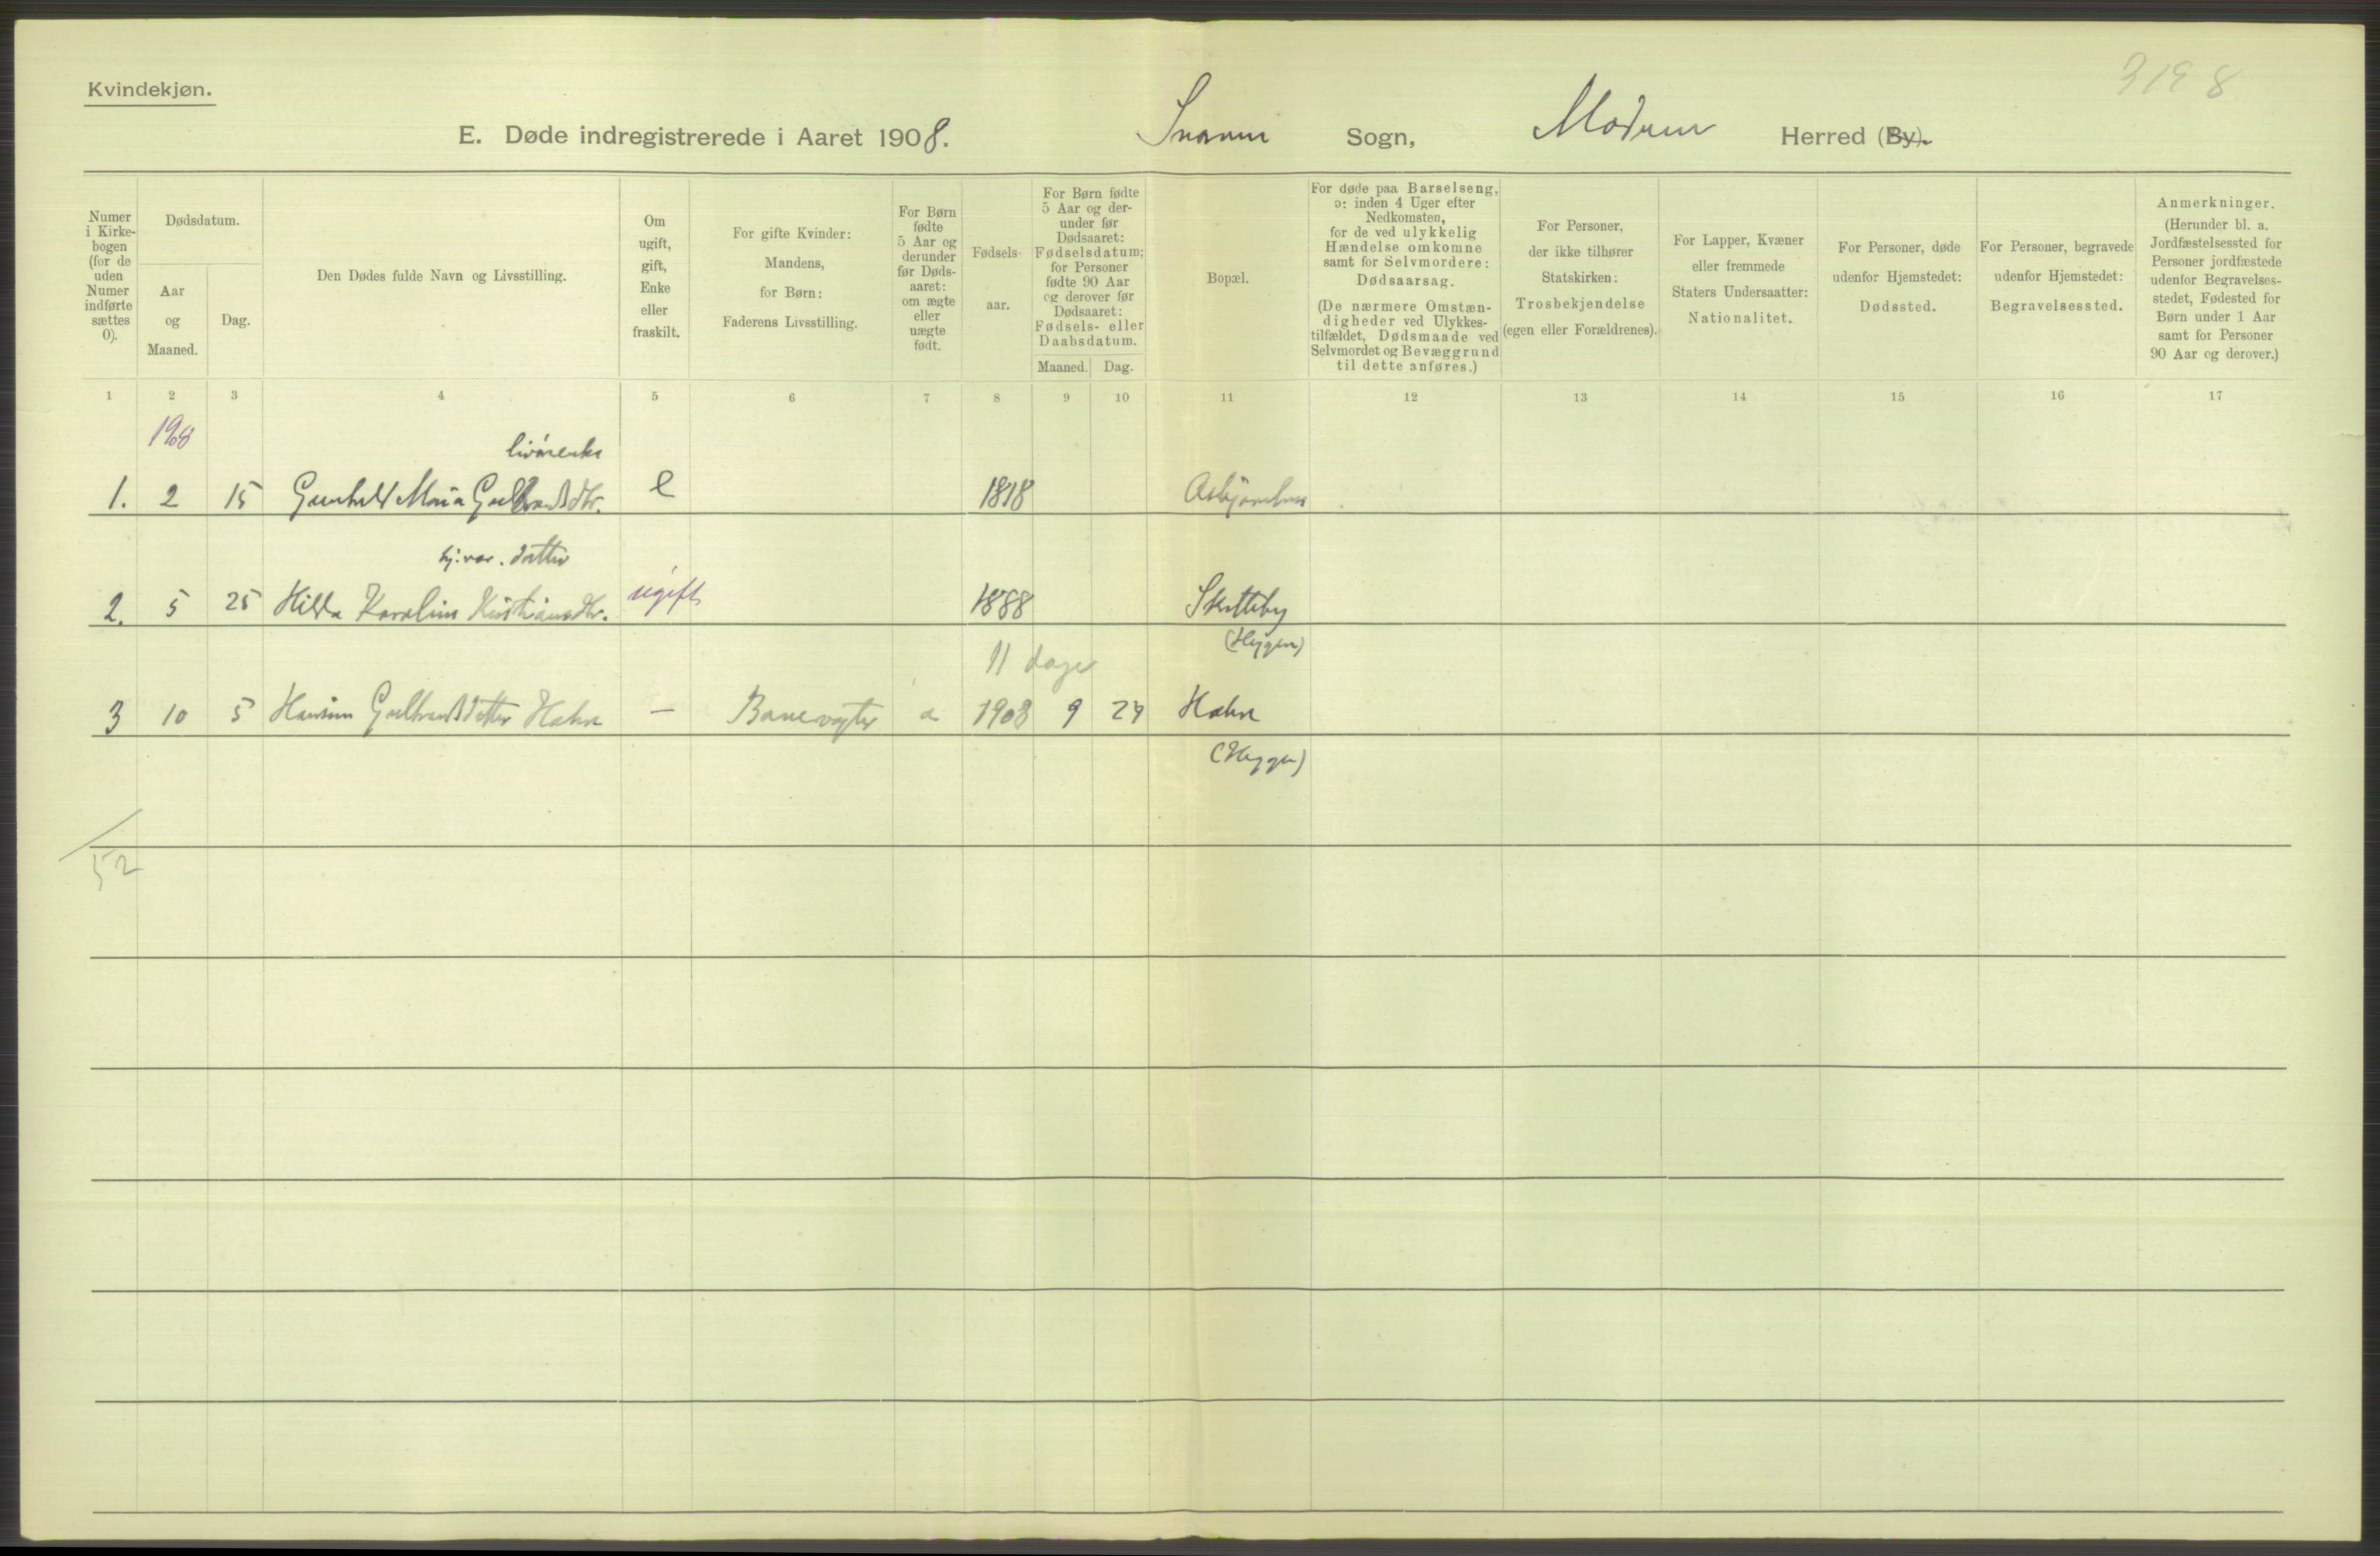 Kvindekjøn.
3198
E. Døde indregistrerede i Aaret 1908. Snarum Sogn, Modum Herred (By).
Numer i Kirkebogen (for de uden Numer indførte sættes 0).
Dødsdatum.
Aar og Maaned.
Dag.
Den Dødes fulde Navn og Livsstilling.
Om ugift, gift, Enke eller fraskilt.
For gifte Kvinder: Mandens, for Børn: Faderens Livsstilling.
For Børn fødte 5 Aar og derunder før Dødsaaret: om ægte eller uægte født.
Fødselsaar.
For Børn fødte 5 Aar og derunder før Dødsaaret: Fødselsdatum; for Personer fødte 90 Aar og derover før Dødsaaret: Fødsels- eller Daabsdatum.
Maaned. Dag.
Bopæl.
For døde paa Barselseng, ɔ: inden 4 Uger efter Nedkomsten, for de ved ulykkelig Hændelse omkomne samt for Selvmordere: Dødsaarsag.
(De nærmere Omstændigheder ved Ulykkestilfældet, Dødsmaade ved Selvmordet og Bevæggrund til dette anføres.)
For Personer, der ikke tilhører Statskirken: Trosbekjendelse (egen eller Forældrenes).
For Lapper, Kvæner eller fremmede Staters Undersaatter: Nationalitet.
For Personer, døde udenfor Hjemstedet: Dødssted.
For Personer, begravede udenfor Hjemstedet: Begravelsessted.
Anmerkninger. (Herunder bl. a. Jordfæstelsessted for Personer jordfæstede udenfor Begravelsesstedet, Fødested for Børn under 1 Aar samt for Personer 90 Aar og derover.)
1 2 3 4 5 6 7 8 9 10 11 12 13 14 15 16 17
1908
1. 2 15 Gunhild Maria Gulbrandsdtr. e 1818
hj.vær. datter
2. 5 25 Hilda Karoline Kristiansdtr. ugift 1888 Skutteby
(Hyggen)
11 dage
3 10 5 Gulbrandsdatter Hahn — Banevogter 1908 9 24 Hahn
(Hyggen)
52